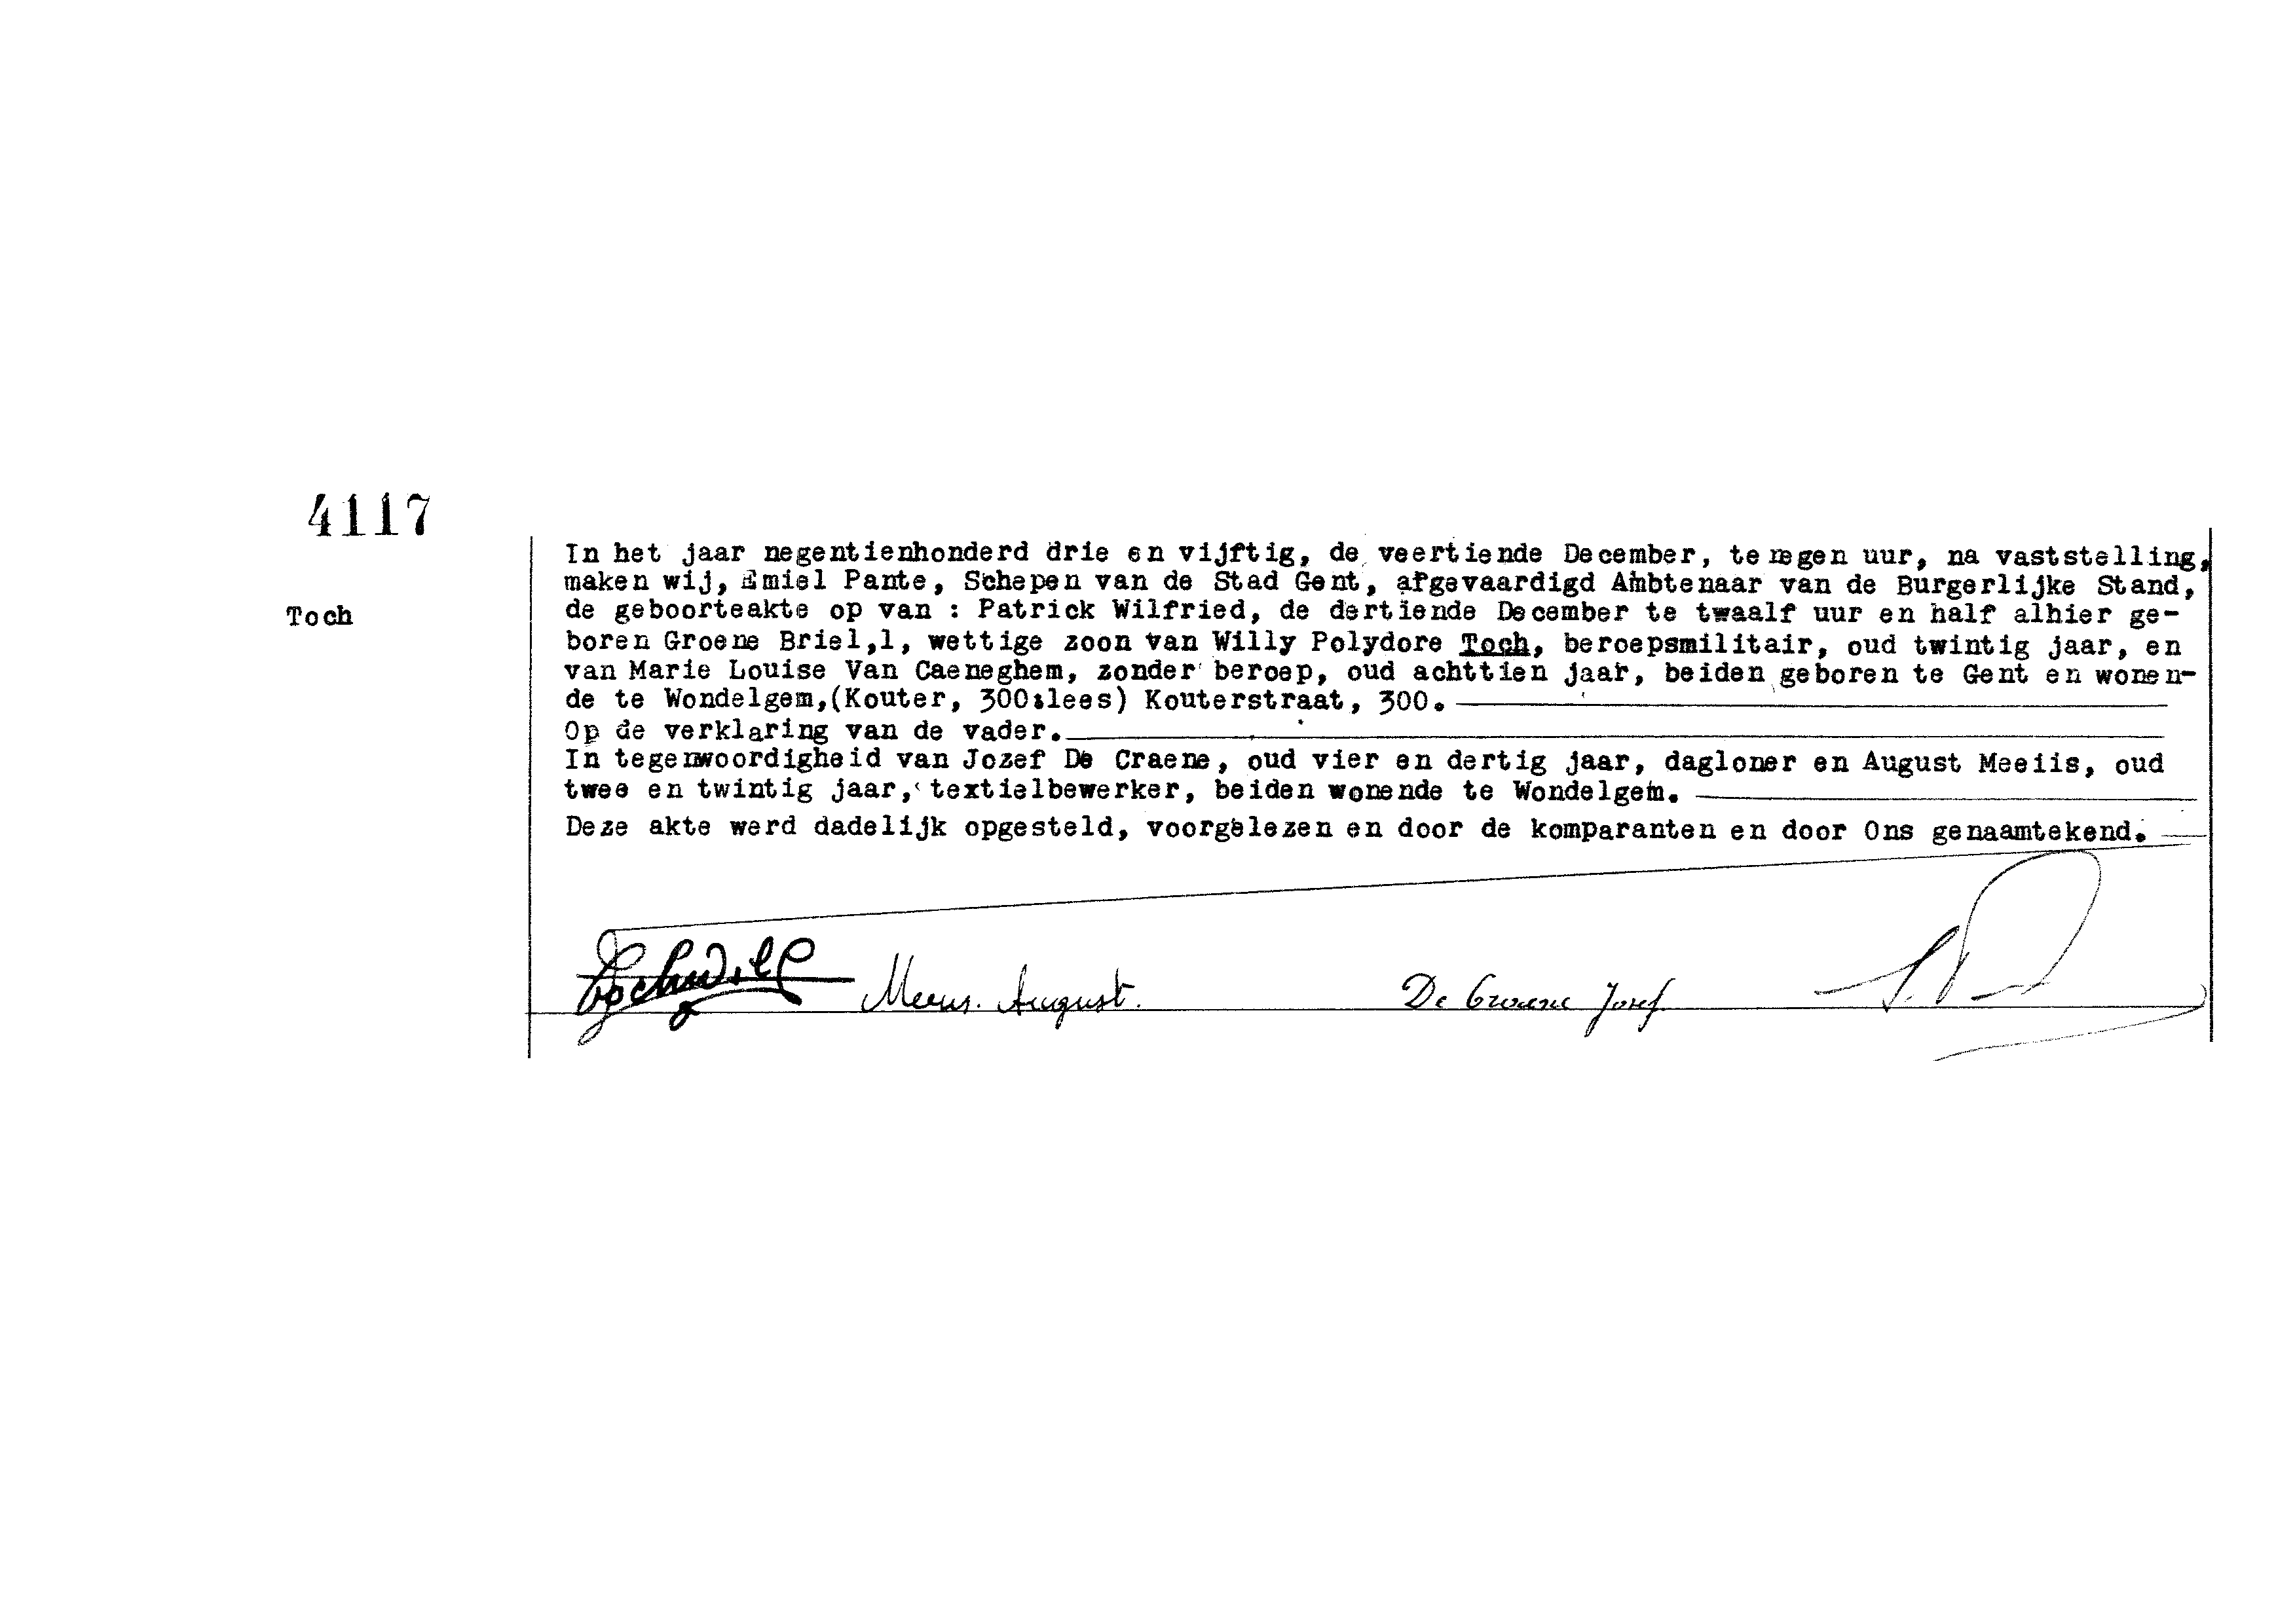 4117
Toch
In het jaar negentienhonderd drie en vijftig, de veertiende December, te negen uur, na vaststelling,
maken wij, Emiel Pante, Schepen van de Stad Gent, afgevaardigd Ambtenaar van de Burgerlijke Stand,
de geboorteakte op van : Patrick Wilfried, de dertiende December te twaalf uur en half alhier ge-
boren Groene Briel,1, wettige zoon van Willy Polydore Toch, beroepsmilitair, oud twintig jaar, en
van Marie Louise Van Caeneghem, zonder beroep, oud achttien jaar, beiden geboren te Gent en wonen-
de te Wondelgem,(Kouter, 300:lees) Kouterstraat, 300.
Op de verklaring van de vader.
In tegenwoordigheid van Jozef De Craene, oud vier en dertig jaar, dagloner en August Meeiis, oud
twee en twintig jaar, textielbewerker, beiden wonende te Wondelgem.
Deze akte werd dadelijk opgesteld, voorgelezen en door de komparanten en door Ons genaamtekend.
August. De Craene Jozef